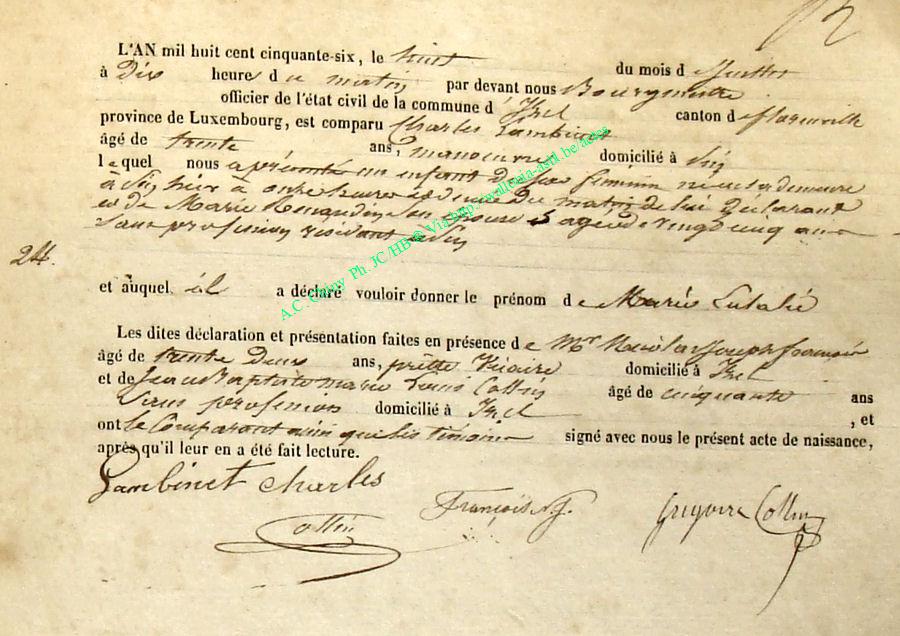 L'AN mil huit cent cinquante-six, le huit du mois d Juillet
à Dix heure d u matin par devant nous Bourgmestre
officier de l'état civil de la commune d' Izel canton de Florenville
province de Luxembourg, est comparu Charles Lambinet
âgé de trente ans, manoeuvre domicilié à
lequel nous a présenté un enfant de sexe féminin née en sa demeure
à hier à onze heures du matin de lui déclarant
et de Marie son épouse agée de vingt cinq ans
sans profession résidant à
24.
et auquel il a déclaré vouloir donner le prénom de Marie Eulalie
Les dites déclaration et présentation faites en présence de Mr Nicolas Joseph François
âgé de trente Deux ans, prêtre Vicaire domicilié à Izel
et de Jean Baptiste marie Louis Collin âgé de cinquante ans
Sans profession domicilié à Izel , et
ont le Comparant ainsi que les témoins signé avec nous le présent acte de naissance,
après qu'il leur en a été fait lecture.
Lambinet charles
François N.J.
Grégoire Collin
Collin
A.C. Chiny Ph. JC/HB © Via http://wallonia-asbl.be/actes